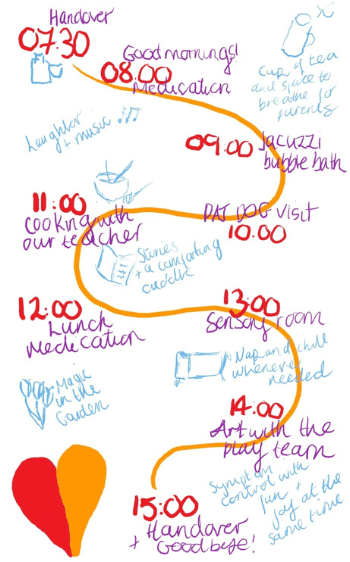 Handover
07.30
Good mornings!
08.00
Medication
Cup of tea
and space to
breathe for
parents
Laughter
+ music
09.00 Jacuzzi
bubble bath
11:00
Cooking with
our teacher
PAT DOG visit
10.00
Stories
+ a comforting
cuddle
12:00
Lunch
Medication
13:00
Sensory room
Nap and chill
whenever
needed
Magic
in the
Garden
14.00
Art with the
play team
Symptom
control with
fun +
joy at the
same time
15:00
Handover
+ Goodbye!